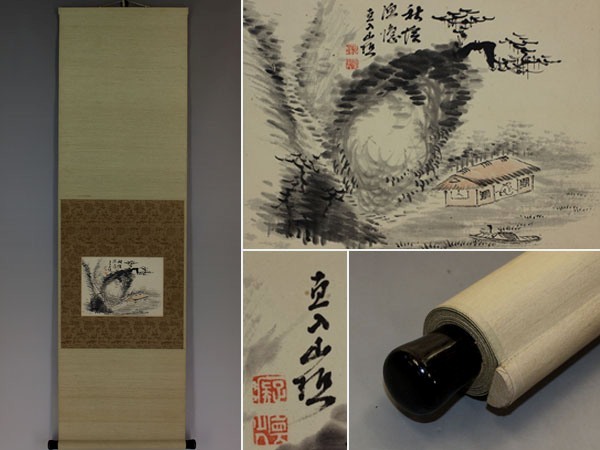 秋溪
漁隱
直入山樵
直入山樵